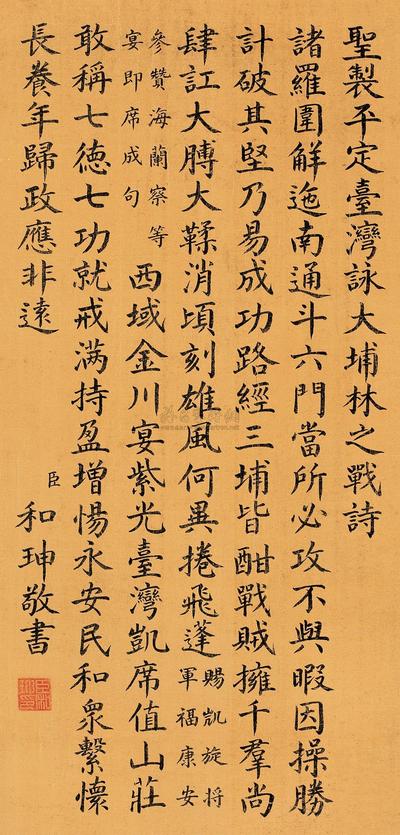 聖製平定臺灣詠大埔林之戰詩
諸羅圍解迤南通斗六門當所必攻不與暇因操勝
計破其堅乃易成功路經三埔皆酣戰賊擁千羣尚
肆訌大膊大鞣消頃刻雄風何異捲飛蓬
賜凱旋將
軍福康安
參贊海蘭察等
宴即席成句
西域金川宴紫光臺灣凱席值山莊
敢稱七德七功就戒满持盈增惕永安民和衆繫懷
長養年歸政應非遠
臣和珅敬書